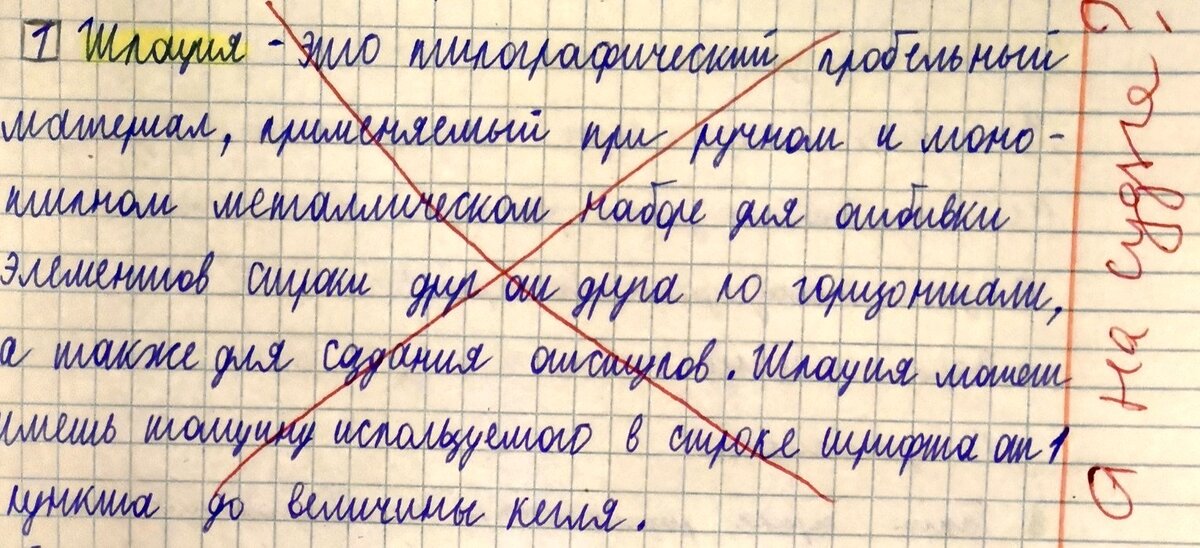 1 Шпация - это типографический пробельный
материал, применяемый при ручном и моно-
типном металлическом наборе для отбивки
элементов строки друг от друга по горизонтали,
а также для создания отступов. Шпация может
иметь толщину используемого в строке шрифта от 1
пункта до величины кегля.
на